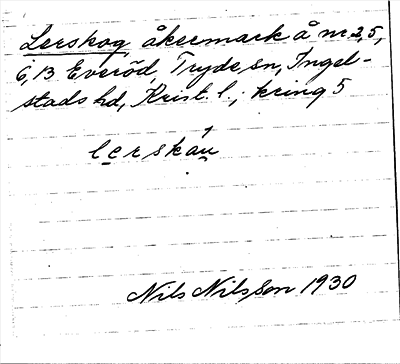 Lerskog, åkermark å nr 2, 5,
6, 13 Everöd, Tryde sn, Ingel-
stads hd, Krist. l.; kring 5
lerskáu
Nils Nilsson 1930